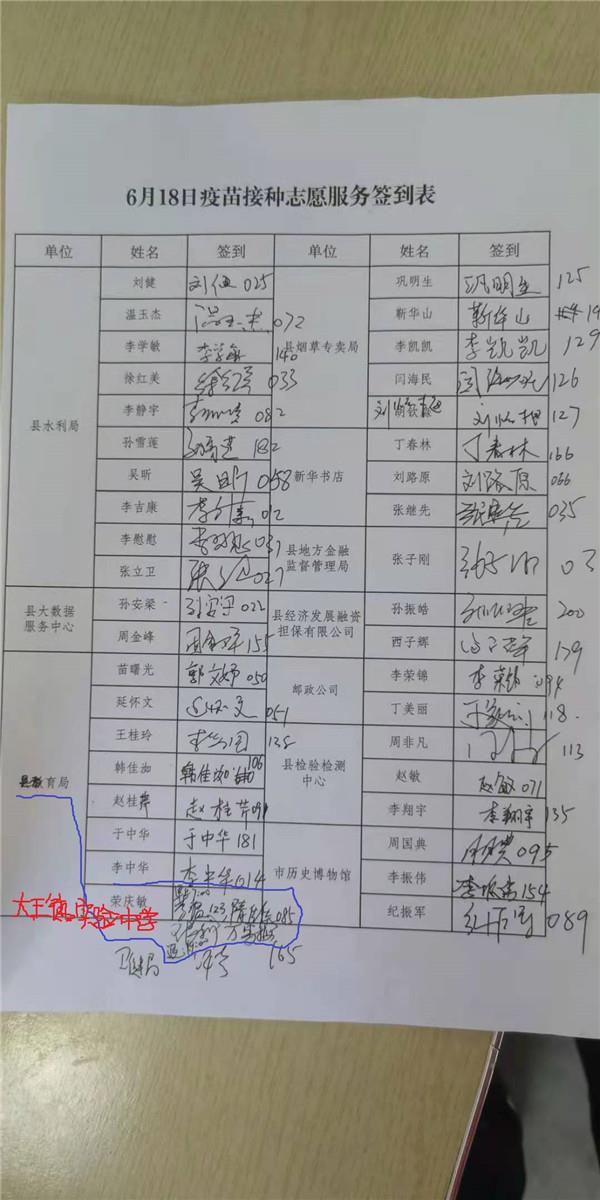 6月18日疫苗接种志愿服务签到表
单位 姓名 签到 单位 姓名 签到
县水利局 刘健 刘健 025 县烟草专卖局 巩明生 巩明生 125
温玉杰 温玉杰 072 靳华山 靳华山
李学敏 李学敏 140 李凯凯 李凯凯 129
徐红美 徐红美 033 闫海民 闫海民 126
李静宇 082 刘 127
孙雪莲 孙雪莲 182 新华书店 丁春林 丁春林 166
吴昕 吴昕 058 刘路原 刘路原 066
李吉康 李吉康 012 张继先 张继先 035
李慰慰 李慰慰 037 县地方金融监督管理局 张子刚 张子刚 03
张立卫 张立卫 027
县大数据服务中心 孙安梁 孙安梁 022 县经济发展融资担保有限公司 孙振皓 孙振皓 200
周金峰 周金峰 155 西子辉 西子辉 179
县教育局 苗曙光 郭文婷 050 邮政公司 李荣锦 李荣锦 094
延怀文 延怀文 051 丁美丽 118
王桂玲 138 县检验检测中心 周非凡 113
韩佳泇 韩佳泇 106 赵敏 赵敏 071
赵桂芹 赵桂芹 091 李翔宇 李翔宇 135
于中华 于中华 181 市历史博物馆 周国典 周国典 095
李中华 李中华 014 李振伟 李振伟 154
荣庆敏 123 085 纪振军 纪振军 089
大王镇实验中学
165